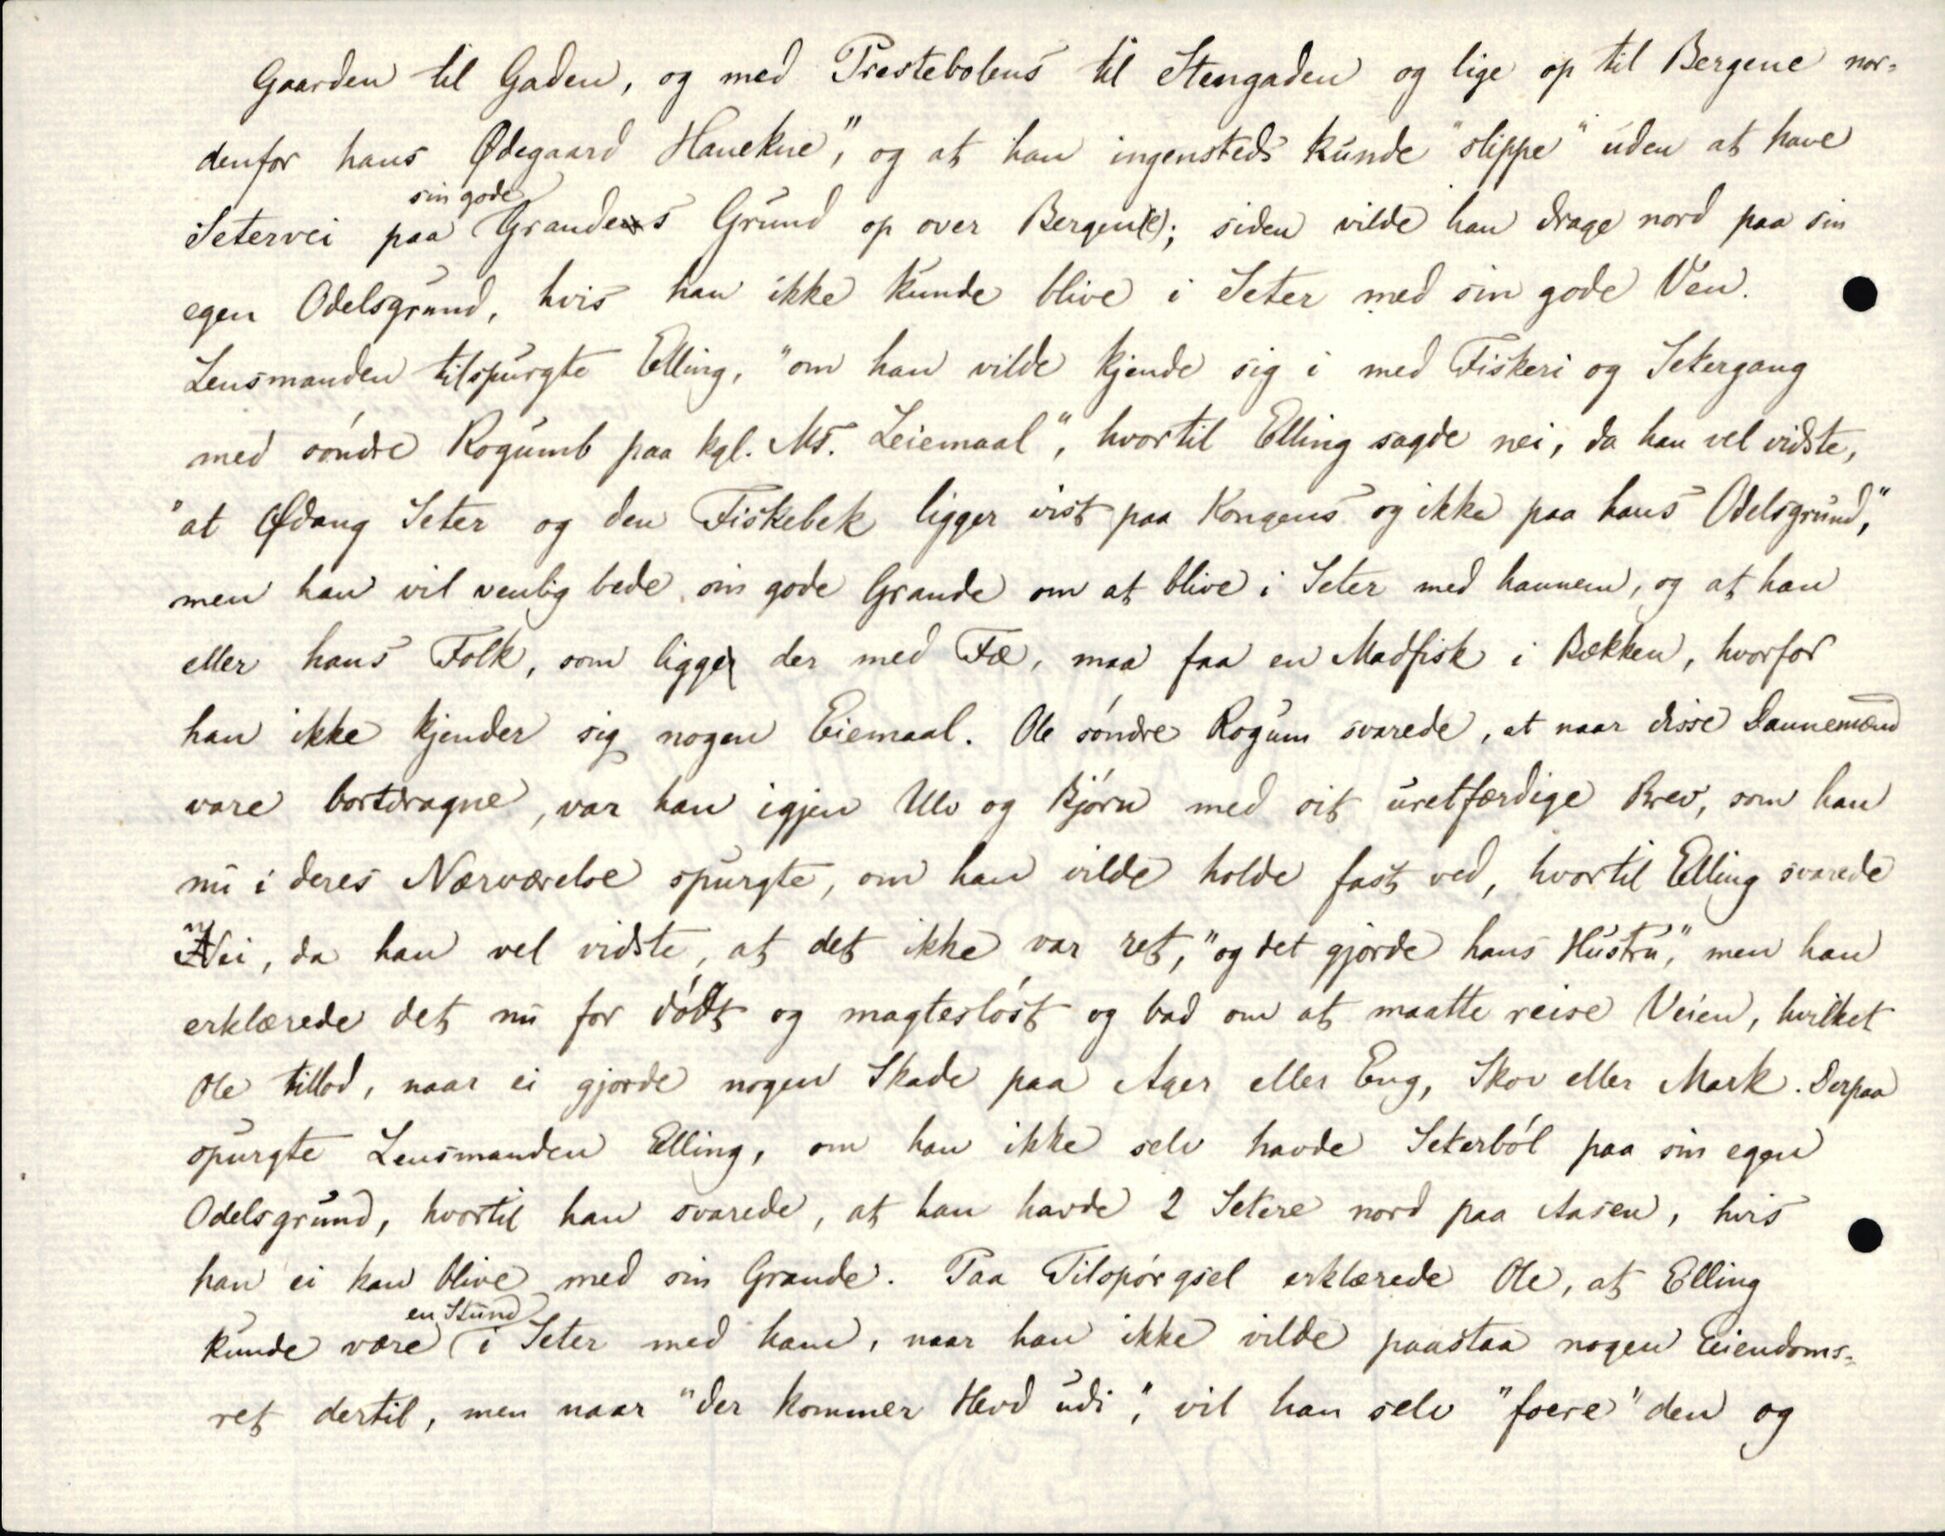 Gaarden til Gaden, og med Prestebolens til Stengaden og lige op til Bergene nor=
denfor hans Ødegaard Hanekne", og at han ingensteds kunde "slippe" uden at have
Setervei paa sin gode Grandes Grund op over Bergen(e); siden vilde han drage nord paa sin
egen Odelsgrund, hvis han ikke kunde blive i Seter med sin gode Ven.
Lensmanden tilspurgte Elling, "om han vilde kjende sig i med Fiskeri og Setergang
med søndre Rogumb paa kgl. Ms. Leiemaal", hvortil Elling sagde nei, da han vel vidste,
"at Ødang Seter og den Fiskebek ligger vist paa Kongens og ikke paa hans Odelsgrund,"
men han vil venlig bede sin gode Grande om at blive i Seter med hannem, og at han
eller hans Folk, som ligger der med Fæ, maa faa en Madfisk i Bækken, hvorfor
han ikke kjender sig nogen Eiemaal. Ole søndre Rogum svarede, at naar disse Dannemænd
vare bortdragne, var han igjen Ulv og Bjørn med sit uretfærdige Brev, som han
nu i deres Nærværelse spurgte, om han vilde holde fast ved, hvortil Elling svarede
nei, da han vel vidste, at det ikke var ret, "og det gjorde hans Hustru," men han
erklærede det nu for dødt og magtesløst og bad om at maatte reise Veien, hvilket
Ole tillod, naar ei gjorde nogen Skade paa Ager eller Eng, Skov eller Mark. Derpaa
spurgte Lensmanden Elling, om han ikke selv havde Seterból paa sin egen
Odelsgrund, hvortil han svarede, at han havde 2 Setere nord paa Aasen, hvis
han ei kan blive med sin Grande. Paa Tilspørgsel erklærede Ole, at Elling
kunde være en Stund i Seter med ham, naar han ikke vilde paastaa nogen Eiendoms=
ret dertil, men naar "der kommer Hevd udi", vil han selv "foere" den og